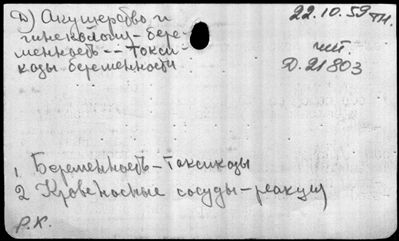 Д) Акушерство и
гинекология - бере-
менность -- токси-
козы беременности
22.10.59 тн.
чит.
Д. 21803
1. Беременность - токсикозы
2 Кровеносные сосуды - реакции
Р.К.